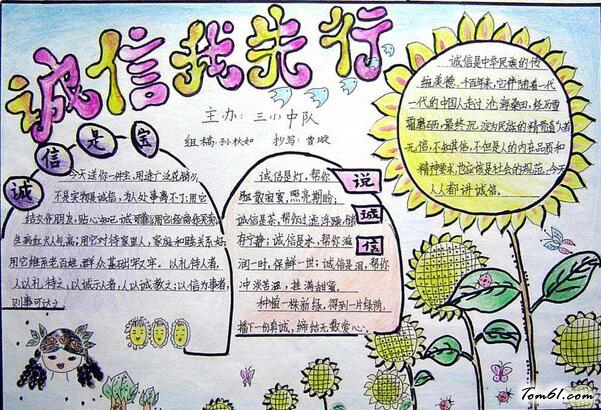 诚信我先行
主办：三小中队
组稿：孙秋如 抄写：曹璇
诚信是宝
今天送你一种宝，用途广泛花销小，
不是实物是诚信，为人处事离不了；用它
结交你朋友，贴心知己
生病红火人气高；用它对待家里人，家庭和睦关系好；
用它维系老百姓，群众基础牢又牢。以礼待人者，
人以礼待之，以诚示人者，人以诚教之；以信为事者，
则事可达之
说诚信
诚信是灯，帮你
驱散寂寞，照亮期盼；
诚信是茶，帮你过滤浮躁，储
存宁静；诚信是水，帮你滋
润一时，保鲜一世；诚信是泪，帮你
冲淡苦涩，挂满甜蜜。
种植一株新绿，得到一片绿荫，
播下一份真诚，缔结无数爱心。
诚信是中华民族的传
统美德，千百年来，它伴随着一代
一代的中国人走过沧海桑田，经历雪
霜磨砺，最终沉淀为民族的精
无信，不知其他，不但是人的内在品质和
精神要求也应该是社会的规范，今天
人人都讲诚信。
Tom61.com